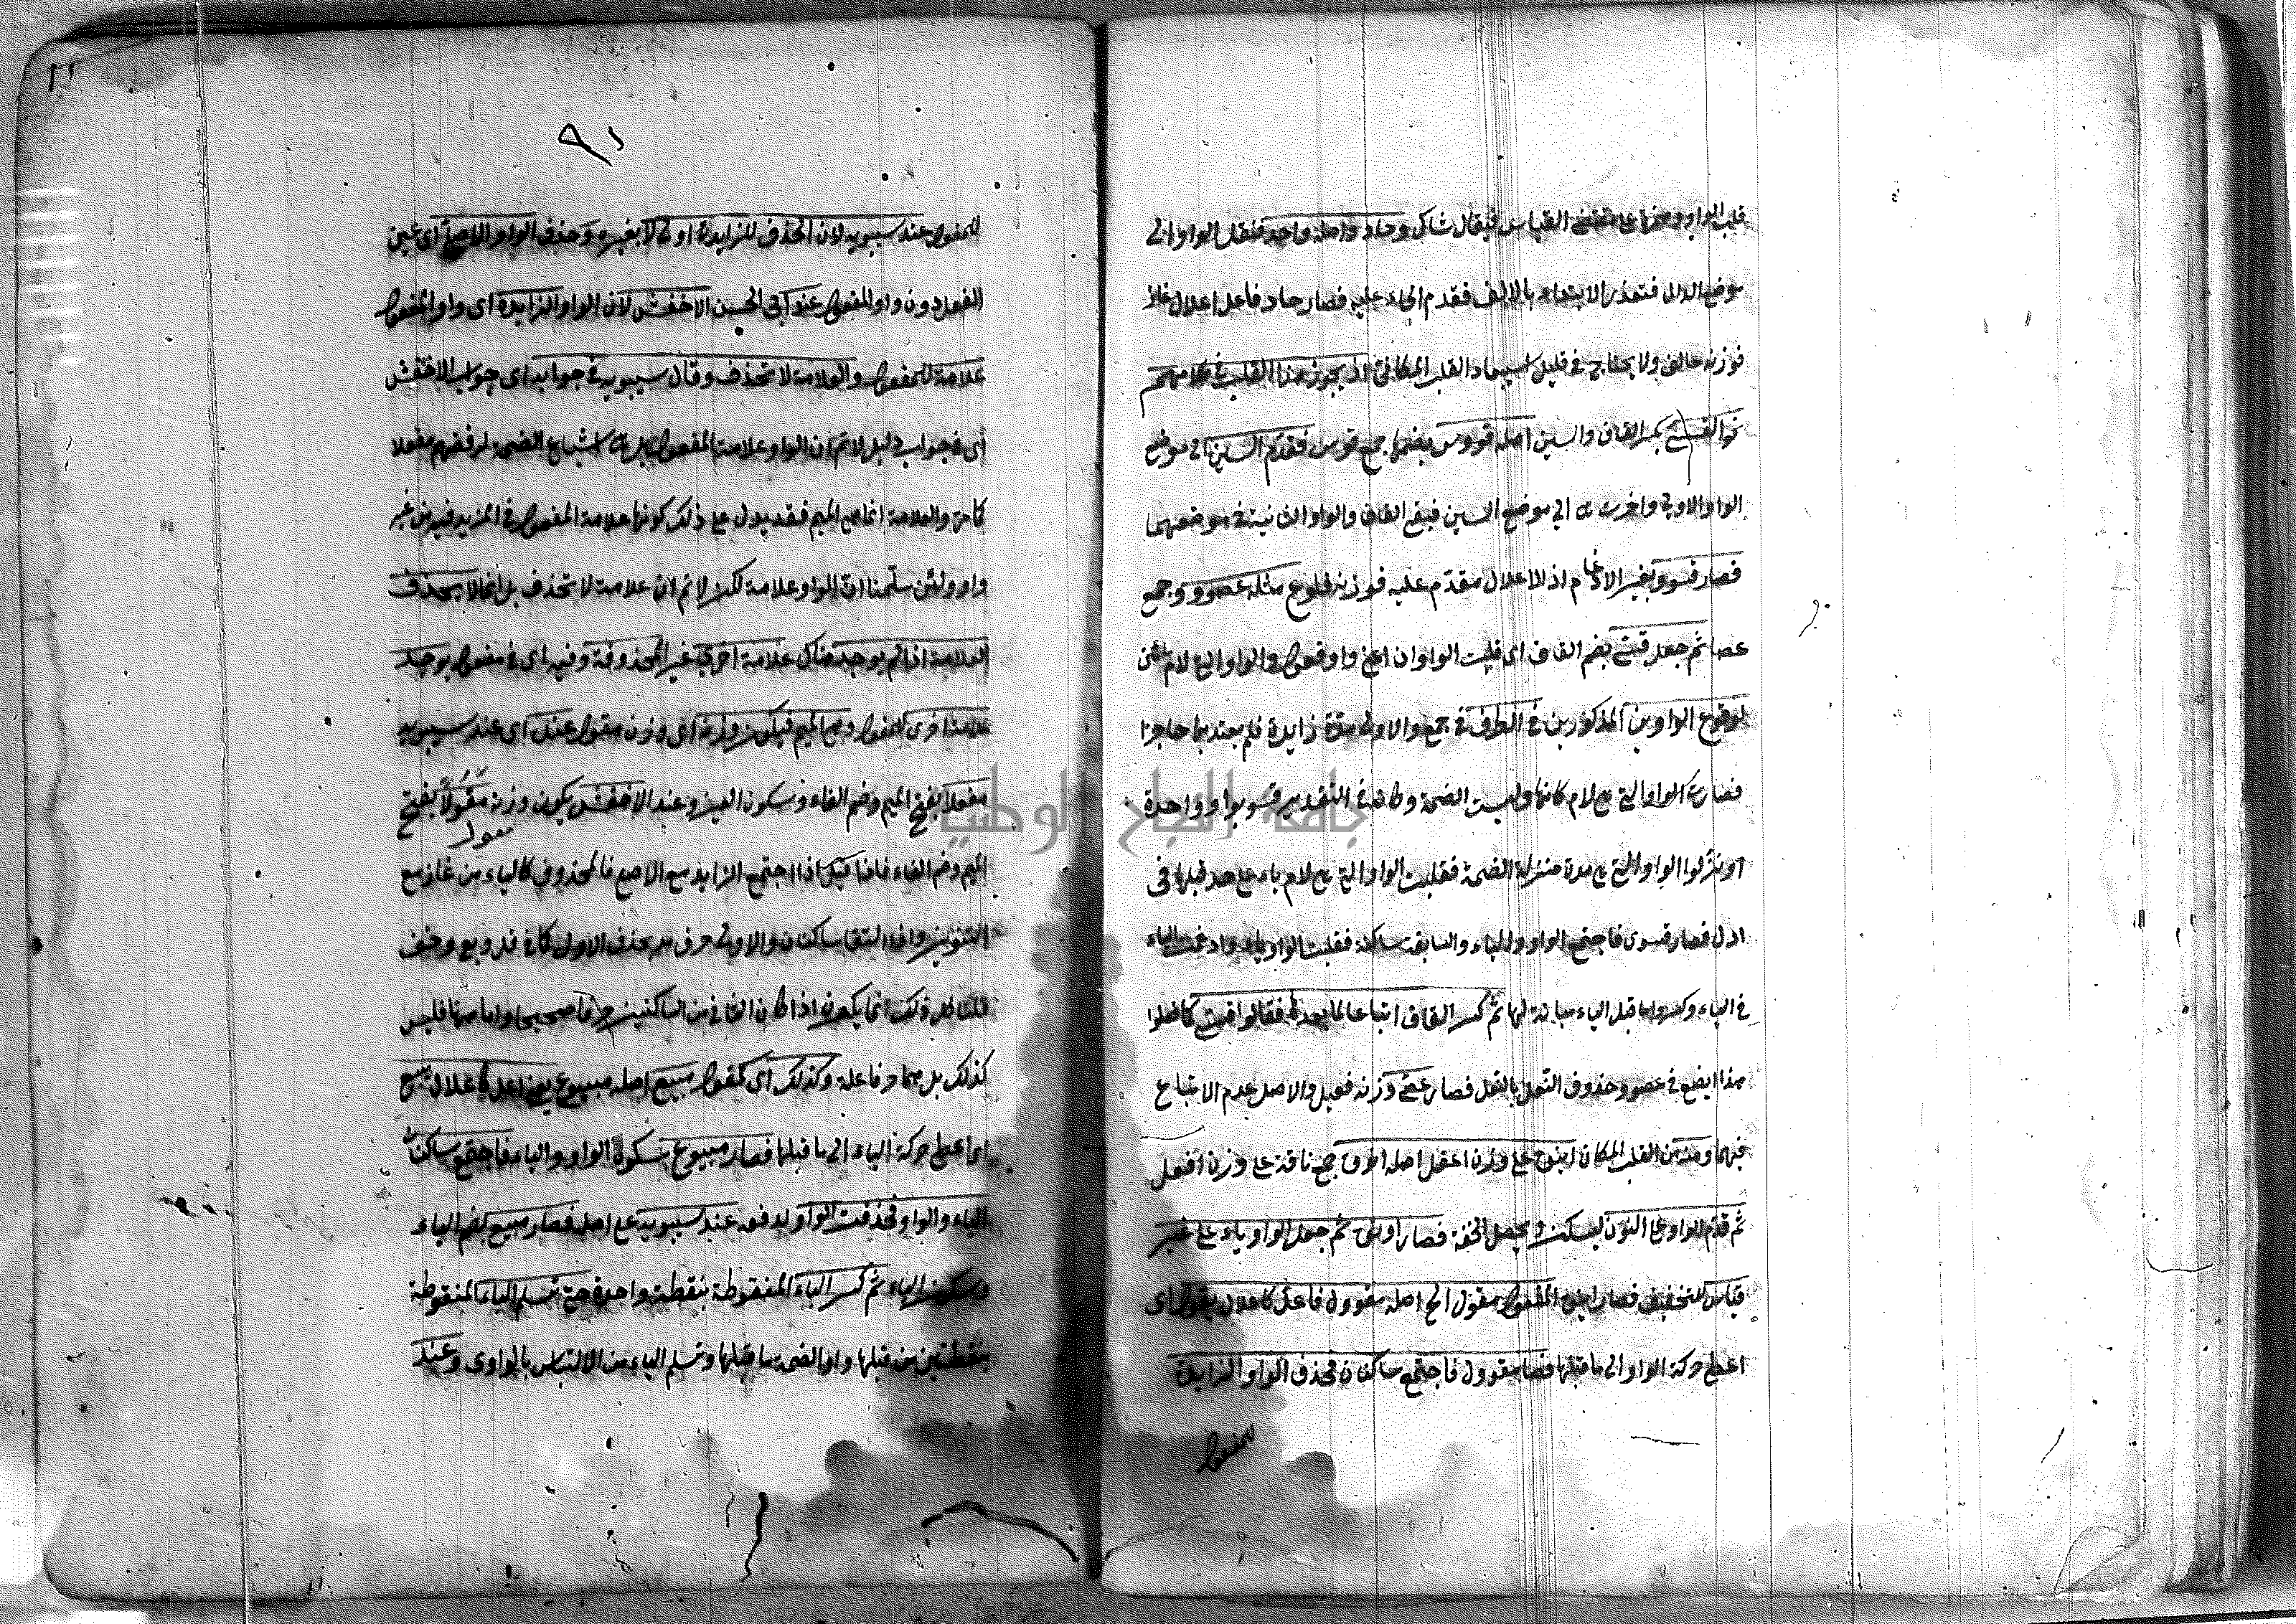 قلب الواو وحذفها على مقتضى القياس فيقال شاك وحاد واصله واحد فنقل الواو الى
موضع الدال فتعذر الابتداء بالالف فقدم الحاء عليه فصار حاد فاعل اعلال غاز
فوزنه عالف ولا يحتاج في قليل القلب المكاني اذ يجوز هذا القلب في كلامهم
نحو القسي بكسر القاف والسين اصله قووس بضمها جمع قوس فقدم السين الى موضع
الواو الاولى واخرت الى موضع السين فبقي القاف والواو الثانية في موضعهما
فصار قسوو بغير الادغام اذ الاعلال مقدم عليه فوزنه فلوع مثله عصوو جمع
عصا ثم جعل قسي بضم القاف اى قلبت الواوان اعنى واو فعول والواو التي لام
لوقوع الواوين المذكورين في الطرف في جمع والاولى مدة زايدة فلم يعتد بها حاجزا
فصارت الواو التي هي لام كانها وليت الضمة وكانه في التقدير قسو بواو واحدة
او نزلوا الواو التي هي مدة منزلة الضمة فقلبت الواو التي هي لام ياء على حد قبلها فى
ادل فصار قسوى فاجتمع الواو والياء والسابقة ساكنة فقلبت الواو ياء وادغمت الياء
في الياء وكسروا ما قبل الياء صيانة لها ثم كسر القاف اتباعا لما بعدها فقالوا قسي كما فعلوا
هذا ايضا في عصو وحذوف النعل بالنعل فصار عصي وزنه فعيل والاصل عدم الاتباع
فيهما ومنه من القلب المكان اينق على وزن اعفل اصله انوق جمع ناقة على وزن افعل
ثم قدم الواو على النون ليسكن ويحصل الخفة فصار اونق ثم جعل الواو ياء على غير
قياس للتخفيف فصار اينق المفعول مقول الخ اصله مقوول فاعل كاعلال يقول اى
اعطى حركة الواو الى ما قبلها فصار مقوول فاجتمع ساكنان فحذف الواو الزايدة
للمفعول
٩١
للمفعول عند سيبويه لان الحذف للزايدة اولى لا بغيره وحذف الواو الاصلي اى عين
الفعل دون واو المفعول عند ابى الحسن الاخفش لان الواو الزايدة اى واو المفعول
علامة للمفعول والعلامة لا تحذف وقال سيبويه في جوابه اى جواب الاخفش
اى في جواب دليل لانم ان الواو علامة المفعول بل هى اشباع الضمة لرفضهم مفعلا
كامة والعلامة انما هي الميم فقد يدل على ذلك كونها علامة المفعول في المزيد فيه من غير
واو ولئن سلمنا ان الواو علامة لكن لانم ان علامة لا تحذف بل انما لا يحذف
العلامة اذا لم يوجد هناك علامة اخرى غير المحذوفة وفيه اى في مفعول يوجد
علامة اخرى للمفعول وهي الميم فيكون وزنه اى وزن مقول عنده اى عند سيبويه
مفعلا بفتح الميم وضم الفاء وسكون العين وعند الاخفش يكون وزنه مقولا بفتح
مفول
الميم وضم الفاء فاذا قيل اذا اجتمع الزايد مع الاصل فالمحذوف كالياء من غاز مع
التنوين واذا التقا ساكنان والاولى حرف مد يحذف الاول كما في قل وبع وخف
قلنا كل ذلك انما يكون اذا كان الثاني من الساكنين حرفا صحيحا واما هنا فليس
كذلك بل هما حرفا علة وكذلك اى كمقول مبيع اصله مبيوع يعني اعل كاعلال يبيع
اى اعطى حركة الياء الى ما قبلها فصار مبيوع بسكون الواو والياء فاجتمع ساكنان
الياء والواو فحذفت الواو عند سيبويه على اصله فصار مبيع بضم الباء
وسكون الياء ثم كسر الباء المنقوطة بنقطة واحدة حتى تسلم الياء المنقوطة
بنقطتين من قبلها واو الضمة ما قبلها وتسلم الياء من الالتباس بالواوى وعند
جامعة النجاح الوطنية